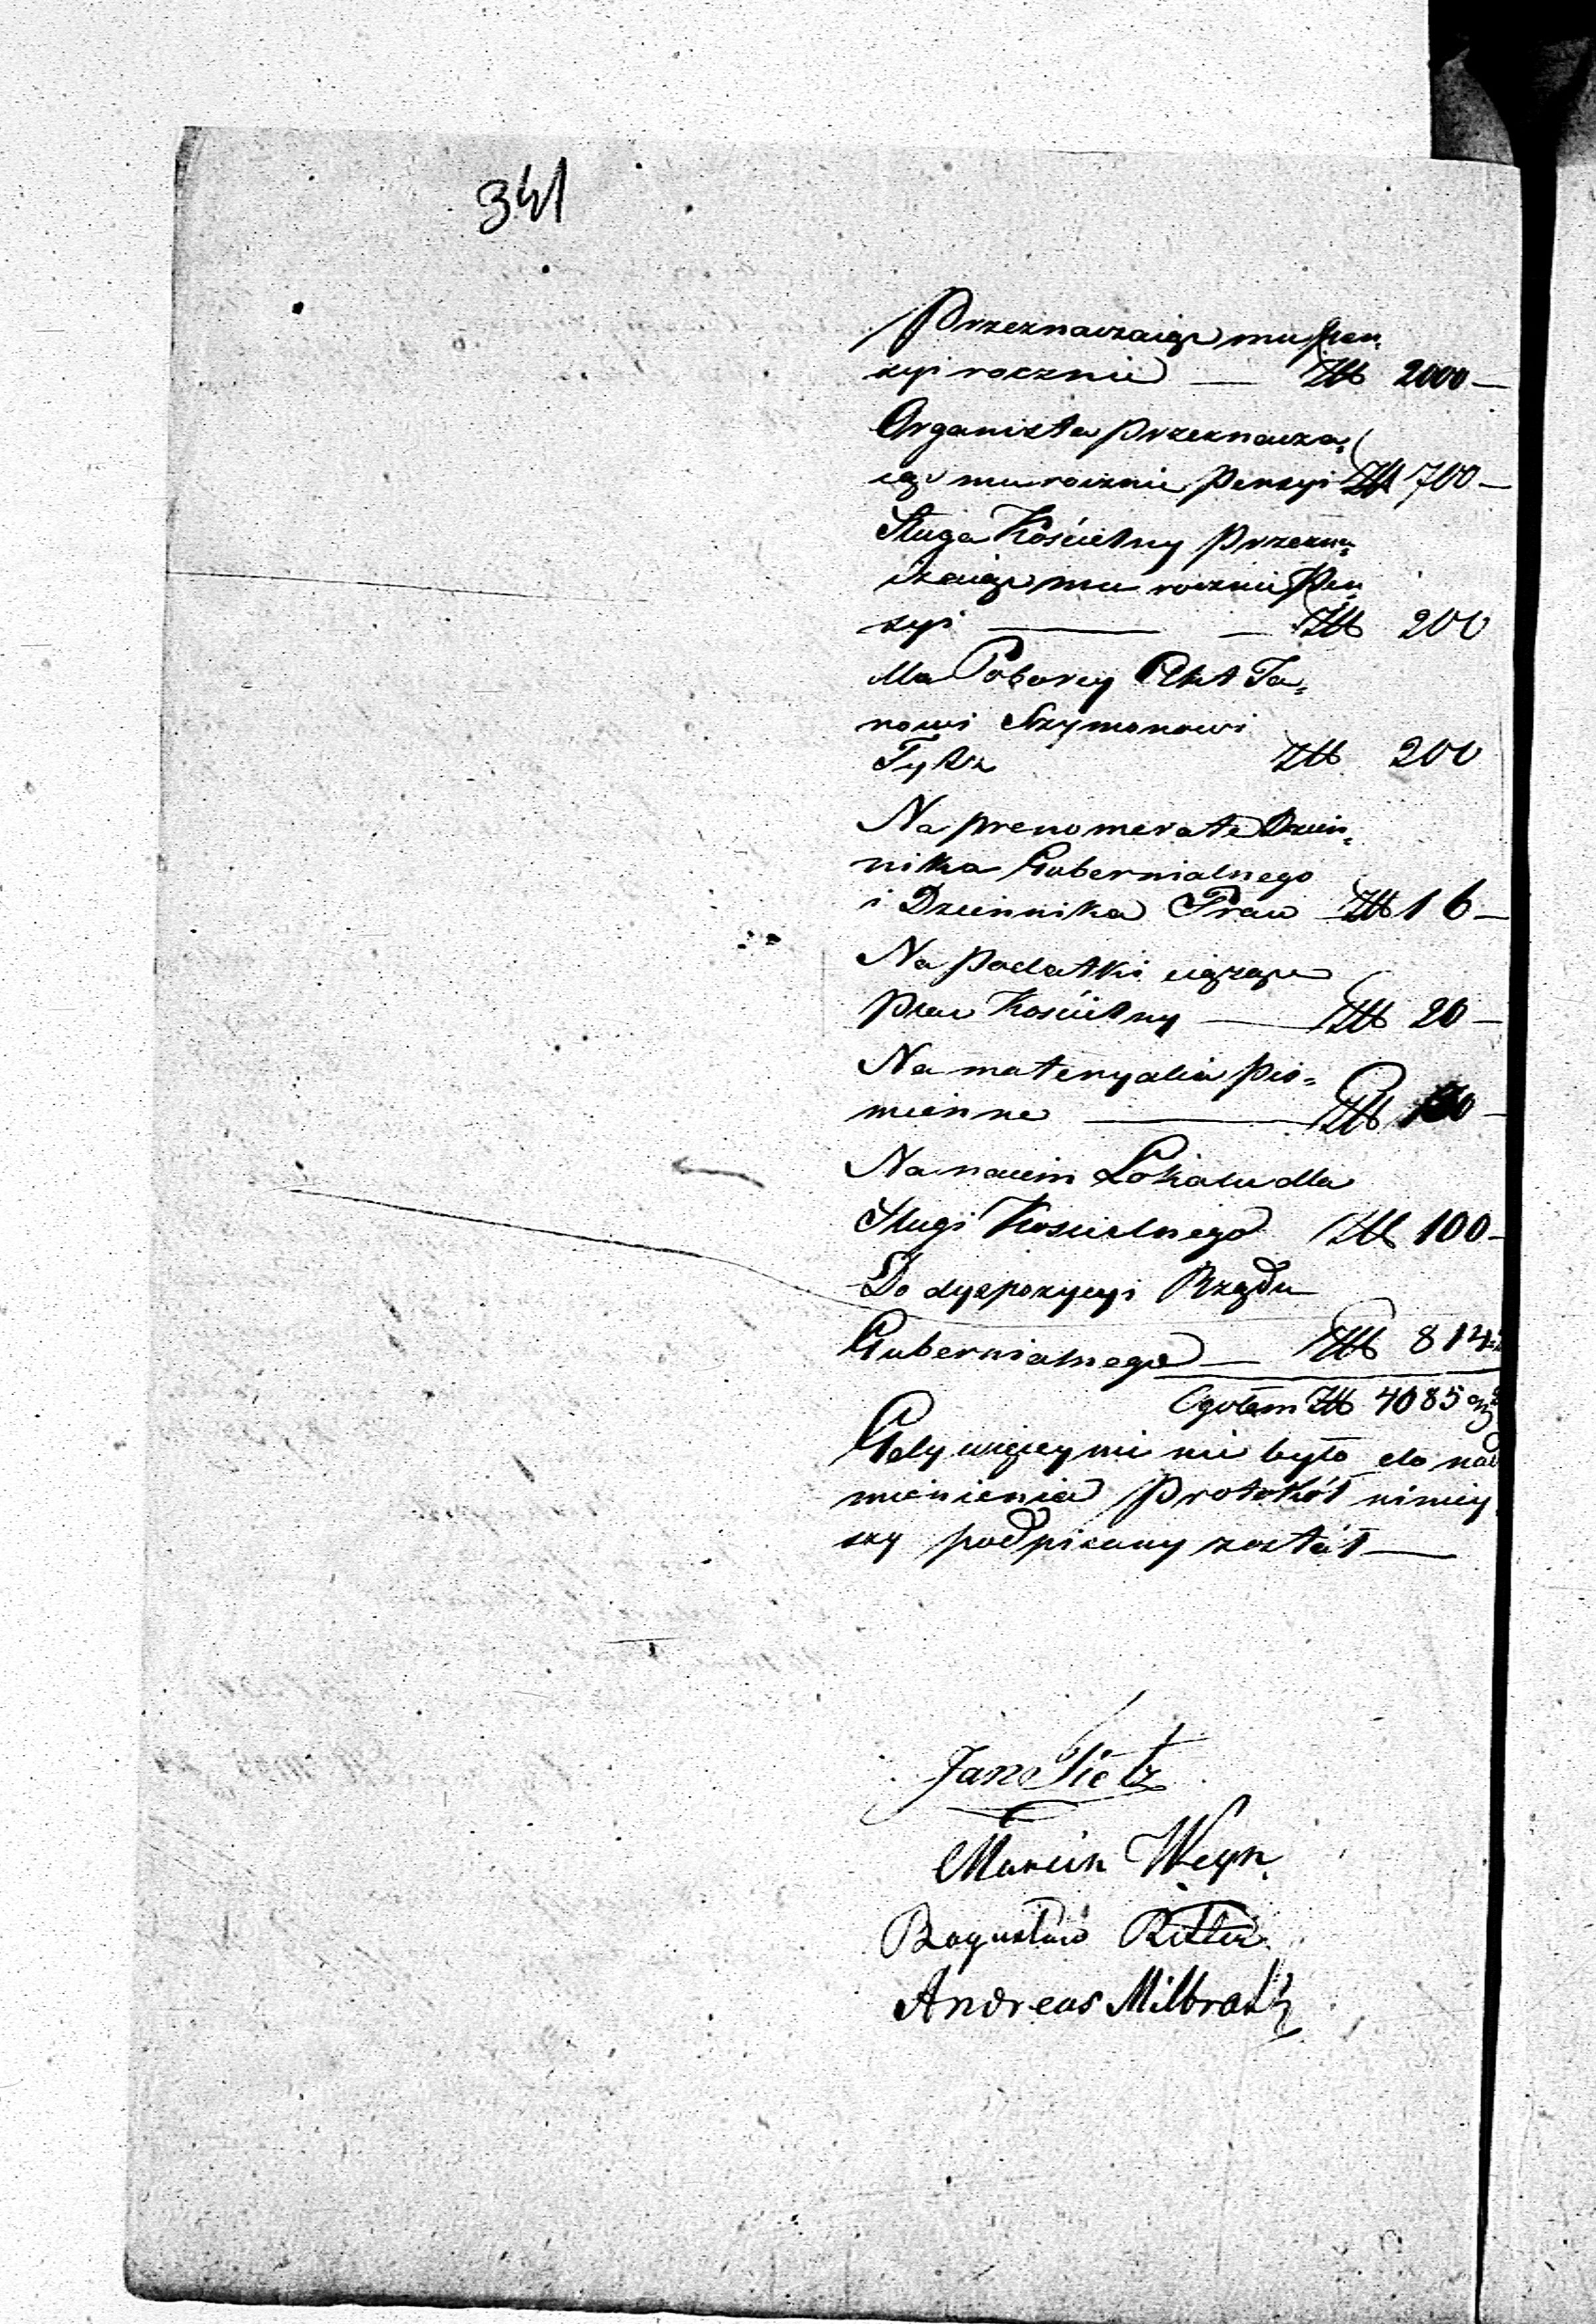 341
Przeznaczaiąc mu Pen=
syi rocznie — Złł 2000 —
Organista przeznacza=
iąc mu rocznie Pensyi Złł 700 —
Sługa Kościelny przezna=
czaiąc mu rocznie Pen=
syi — — Złł 200
dla Poborcy Skł Ja=
nowi Szymonowi
Złł 200
Na prenomeratę Dzien=
nika Gubernialnego
i Dziennika Praw Złł 16 —
Na podatki ciążące
plac Kościelny — Złł 20 —
Na materyalia piś=
mienne — Złł
Na naiem Lokalu dla
Sługi Kościelnego Złł 100 —
Do dyspozycyi Rządu
Gubernialnego — Złł 814
Ogołem Złł 4085 gr
Gdy więcey mi nie było do nad
mienienia protokół niniey
szy podpisany został —
Jan Tietz
Marcin Weyn.
Bogusław Ritter
Andreas Milbratz